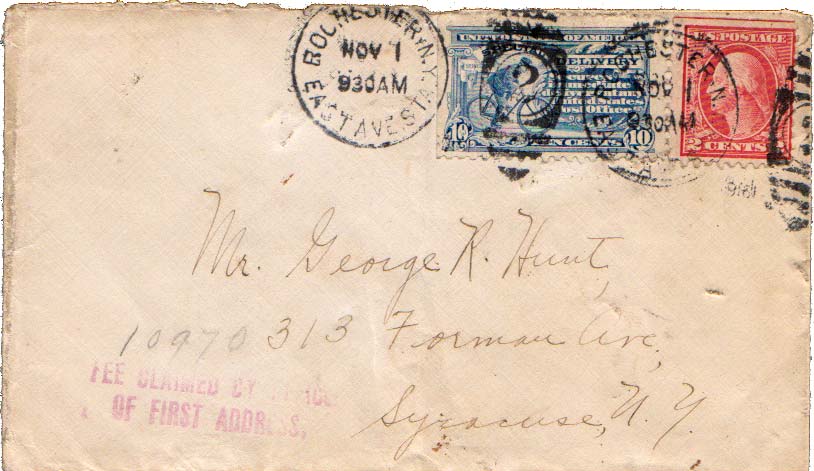 ROCHESTER, N.Y.
NOV 1
930AM
EAST AVE STA.
UNITED STATES OF AMERICA
SPECIAL DELIVERY
Post Office
10 TEN CENTS 10
POSTAGE
2 CENTS 2
ROCHESTER, N.Y.
NOV 1
930AM
EAST
Mr. George R. Hunt,
10970 313 Forman Ave,
FEE CLAIMED BY
OF FIRST ADDRESS,
Syracuse, N.Y.